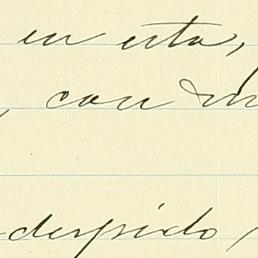 en esta,
, con
despido